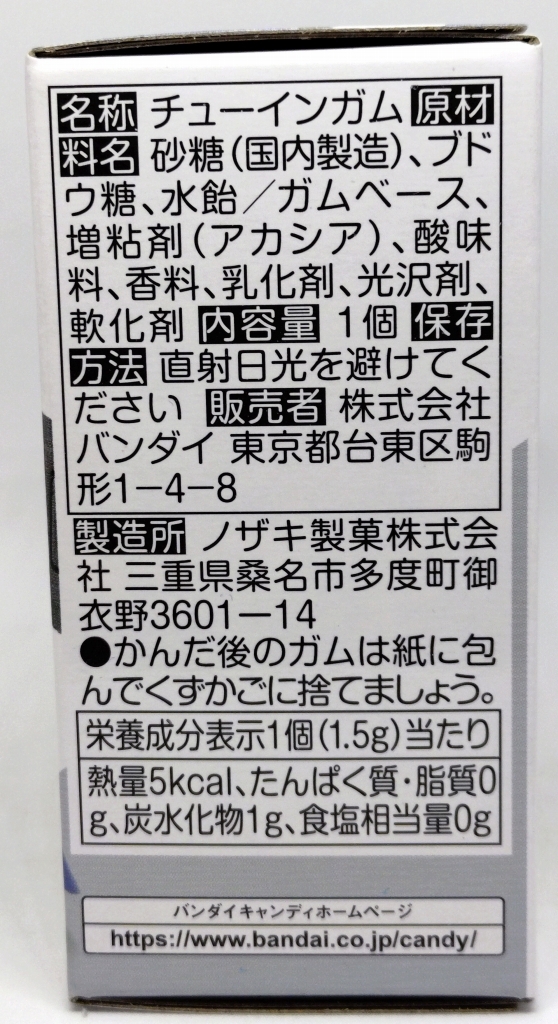 名称 チューインガム 原材
料名 砂糖(国内製造)、ブド
ウ糖、水飴／ガムベース、
増粘剤(アカシア)、酸味
料、香料、乳化剤、光沢剤、
軟化剤 内容量 1個 保存
方法 直射日光を避けてく
ださい 販売者 株式会社
バンダイ 東京都台東区駒
形1－4－8
製造所 ノザキ製菓株式会
社 三重県桑名市多度町御
衣野3601－14
●かんだ後のガムは紙に包
んでくずかごに捨てましょう。
栄養成分表示1個(1.5g)当たり
熱量5kcal、たんぱく質・脂質0
g、炭水化物1g、食塩相当量0g
バンダイキャンディホームページ
https://www.bandai.co.jp/candy/